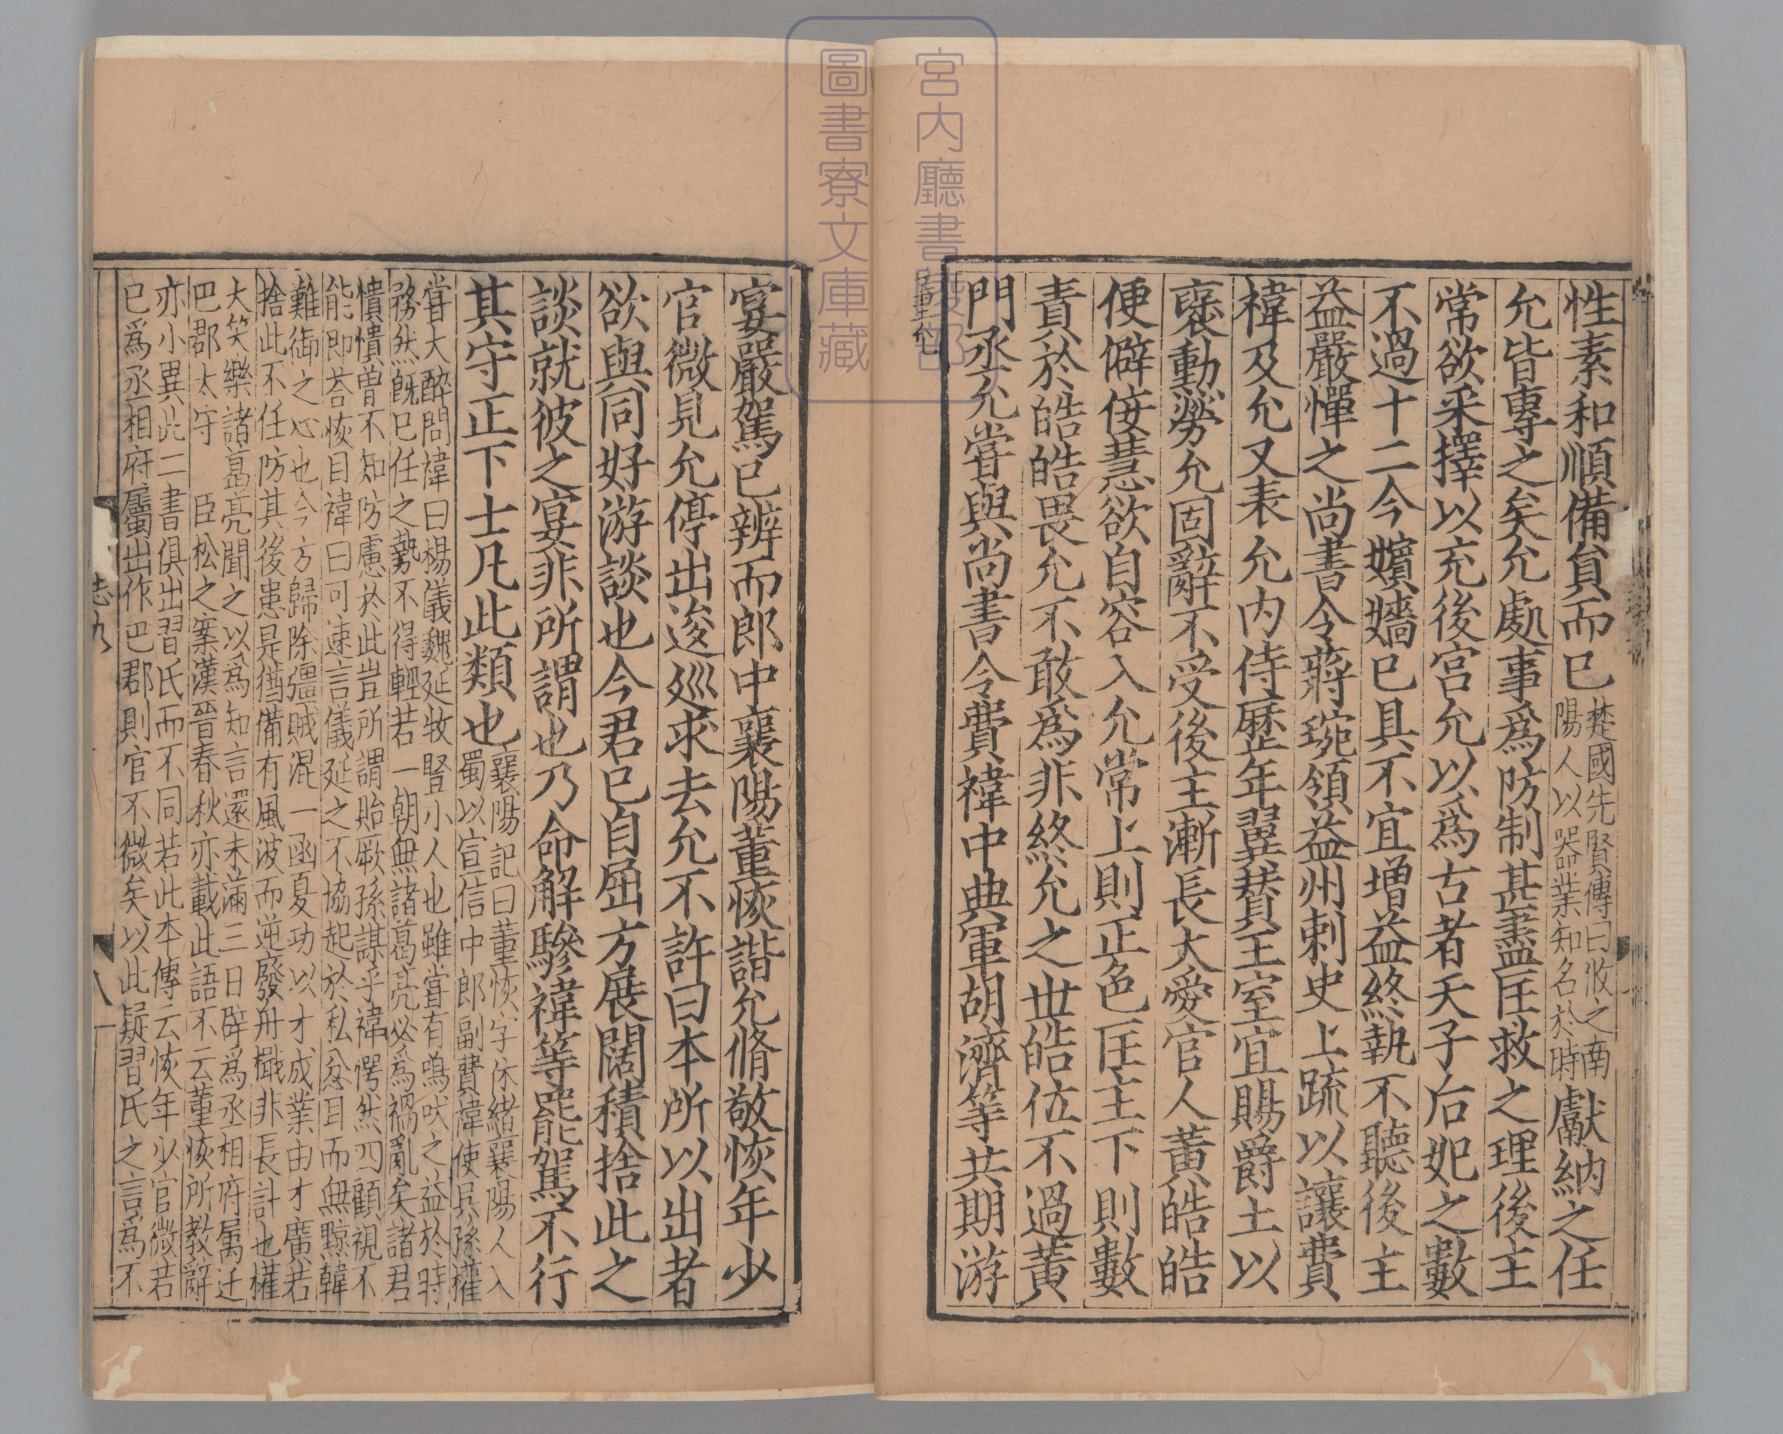 性素和順備負而已楚國先賢傳曰攸之南陽人以器業知名於時獻納之任
允皆專之矣允處事爲防制甚盡匡救之理後主
常欲采擇以充後宮允以爲古者天子后妃之數
不過十二今嬪嬙已具不宜增益終執不聽後主
益嚴憚之尚書令蔣琬領益州刺史上疏以讓費
禕及允又表允内侍歴年翼賛王室宜賜爵土以
襃勳勞允固辭不受後主漸長大愛宦人黃皓皓
便僻佞慧欲自容入允常上則正色匡主下則數
責於皓皓畏允不敢爲非終允之世皓位不過黃
門丞允甞與尚書令費禕中典軍胡濟等共期游
董允
宴嚴駕已辨而郎中襄陽董恢詣允脩敬恢年少
官微見允停出逡巡求去允不許曰本所以出者
欲與同好游談也今君已自屈方展闊積捨此之
談就彼之宴非所謂也乃命解驂禕等罷駕不行
其守正下士凡此類也襄陽記曰董恢字休緒襄陽人入蜀以宣信中郎副費禕使吳孫權
甞大醉問禕曰楊儀魏延牧豎小人也雖甞有鳴吠之益於時
務然旣已任之勢不得輕若一朝無諸葛亮必爲禍亂矣諸君
憒憒曽不知防慮於此豈所謂貽厥孫謀乎禕愕然四顧視不
能即荅恢目禕曰可速言儀延之不協起於私忿耳而無黥韓
難御之心也今方歸除彊賊混一函夏功以才成業由才廣若
捨此不任防其後患是猶備有風波而逆廢舟檝非長計也權
大笑樂諸葛亮聞之以爲知言還未滿三日辟爲丞相府屬迁
巴郡太守　臣松之案漢晉春秋亦載此語不云董恢所教辭
亦小異此二書俱出習氏而不同若此本傳云恢年少官微若
已爲丞相府屬出作巴郡則官不微矣以此疑習氏之言爲不
志九
宮内廳書陵部
圖書寮文庫藏